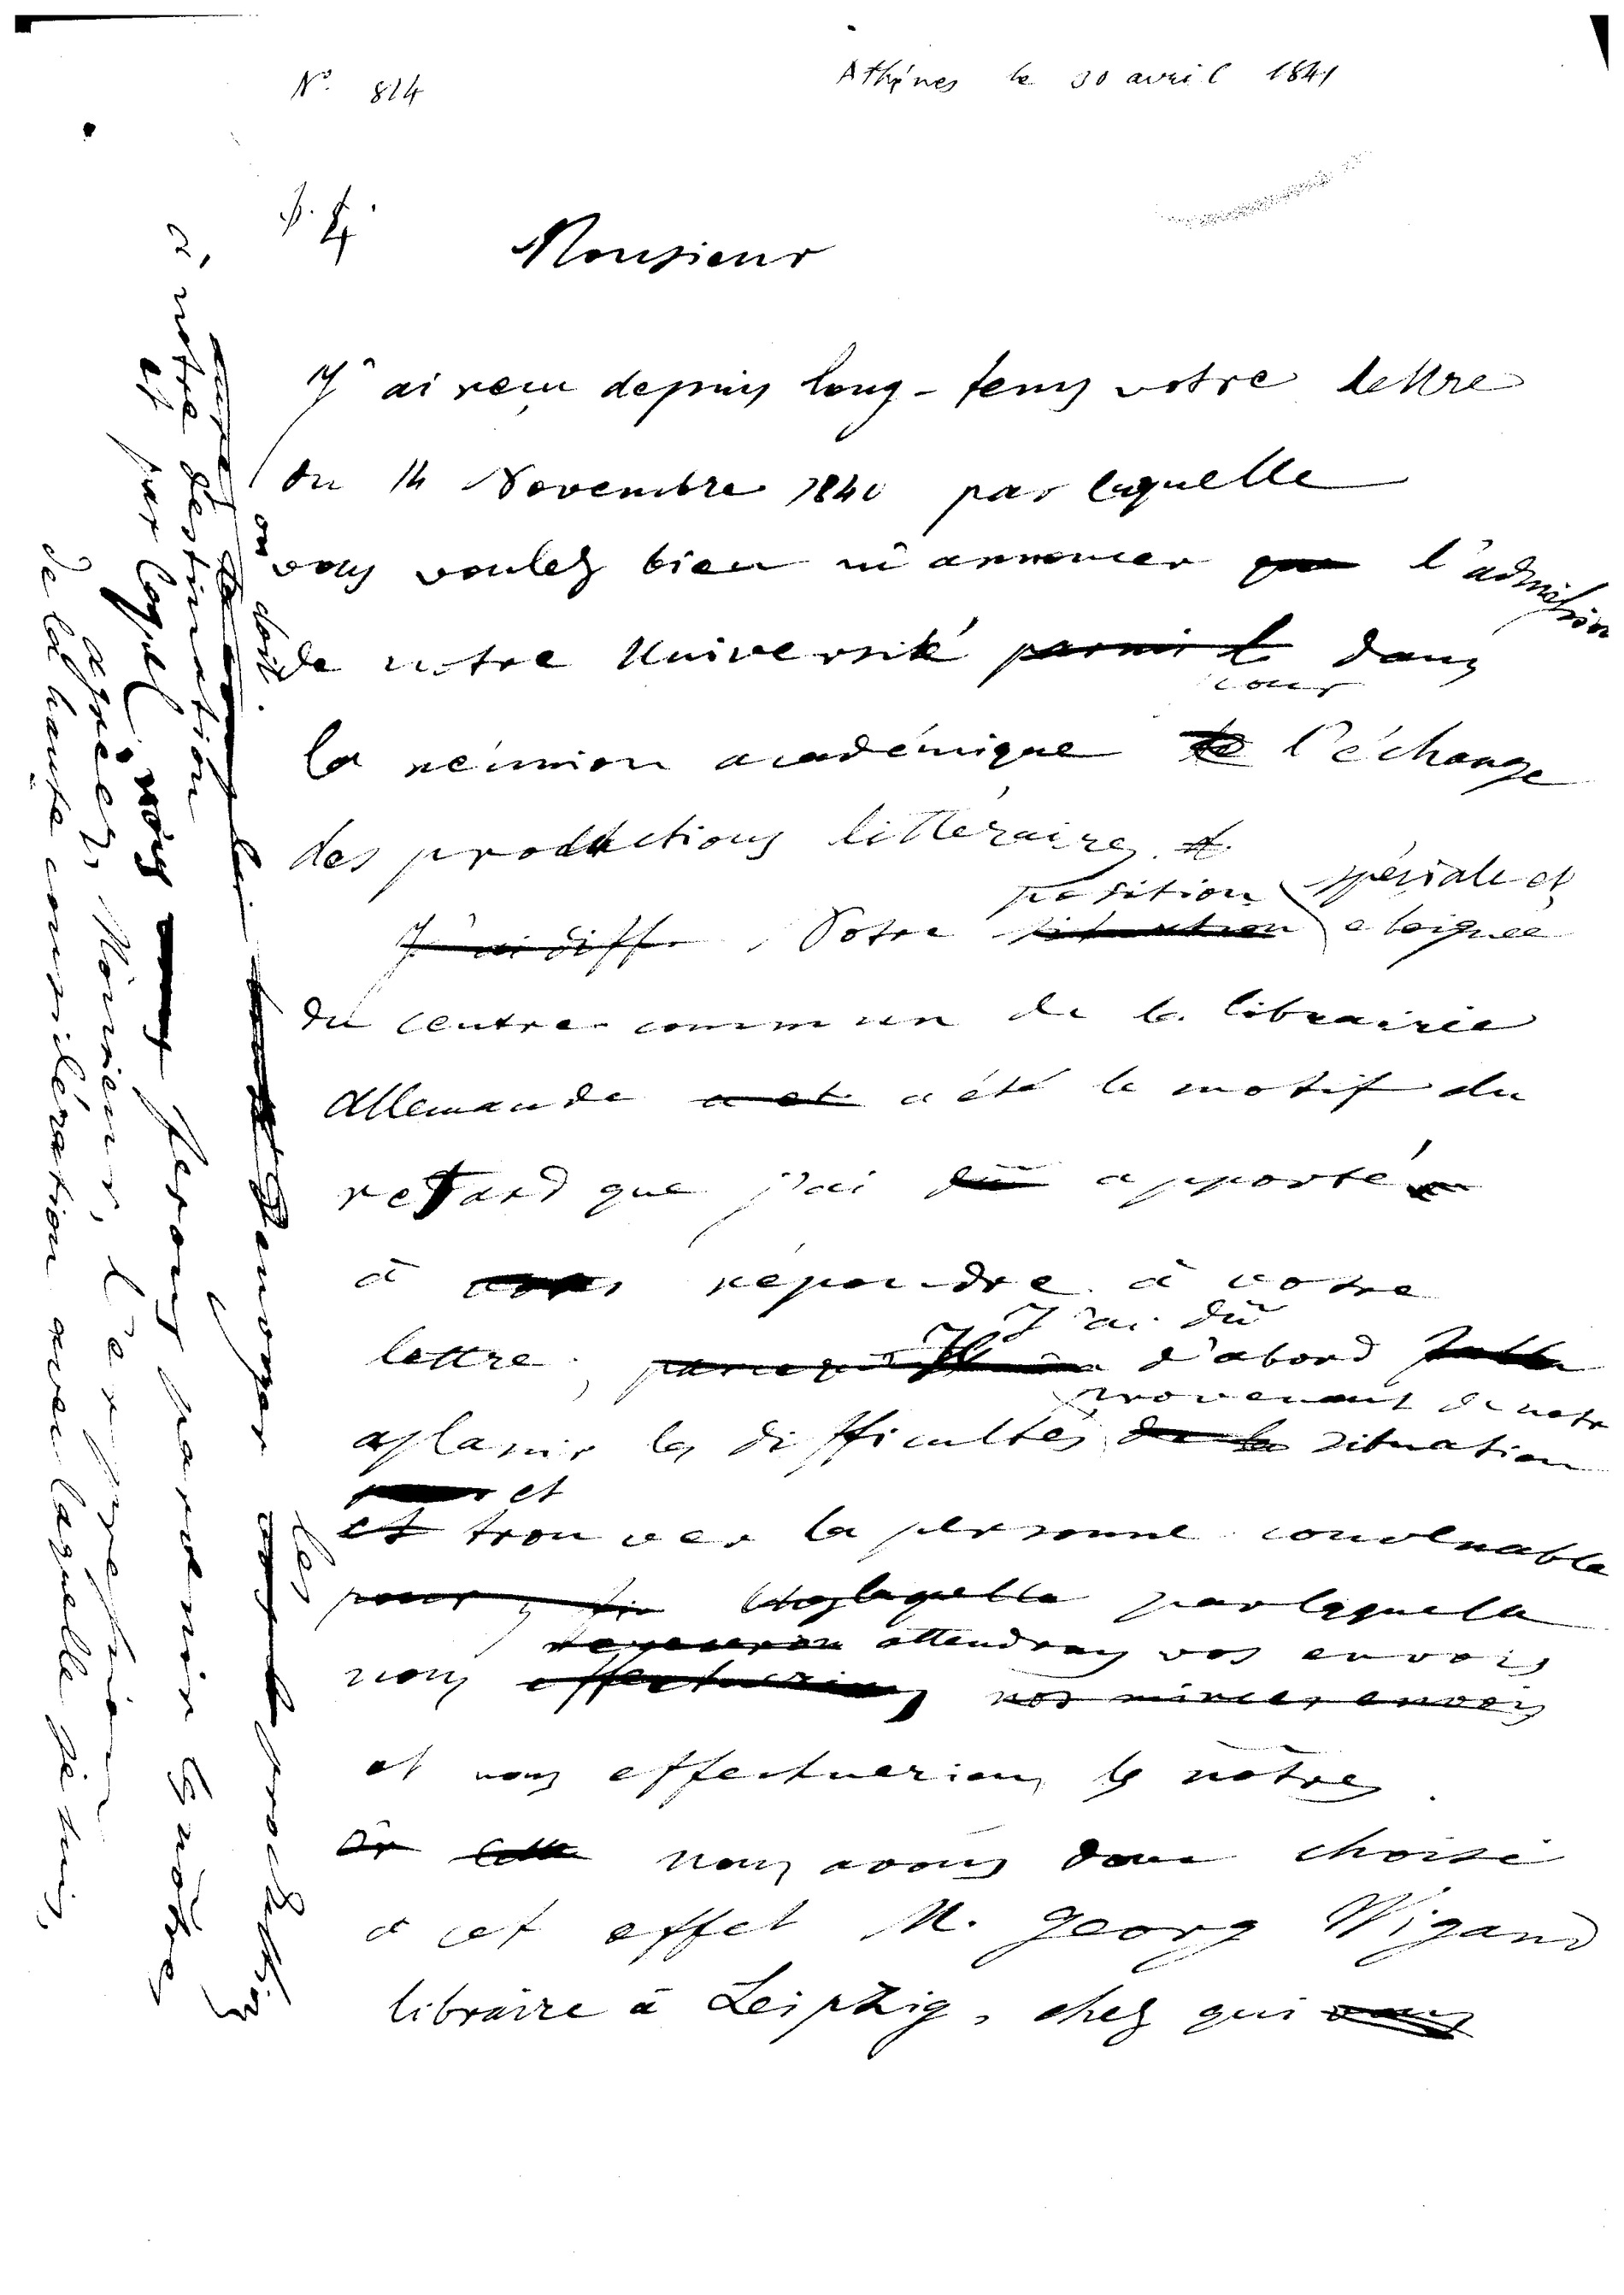 Nº 814
Athènes le 30 avril 1841
Monsieur
J'ai reçu depuis long-tems votre lettre
du 14 Novembre 1840 par laquelle
vous voulez bien m'annoncer l'admission
de notre Université parmi le dans
pour
la réunion académique de l'échange
des productions littéraires
position spéciale et
J'ai diffé. Notre situation éloignée
du centre commun de la librairie
allemande a été le motif du
retard que j'ai dû apporté
à répondre à votre
J'ai dû
lettre; d'abord
provenant de notre
aplanir les difficultés de la situation
et
et trouver la personne convenable
pour laquelle par laquelle
attendrons vos envois
nous effectuerions nos minces envois
et nous effectuerions les nôtres.
Or cette nous avons donc choisi
à cet effet M. Georg Wigand
libraire à Leipzig, chez qui vous
on doit
envoyer les productions
à notre destination
et par lequel nous ferons parvenir les nôtres
agréez, Monsieur, l'expression
de la haute considération avec laquelle je suis,